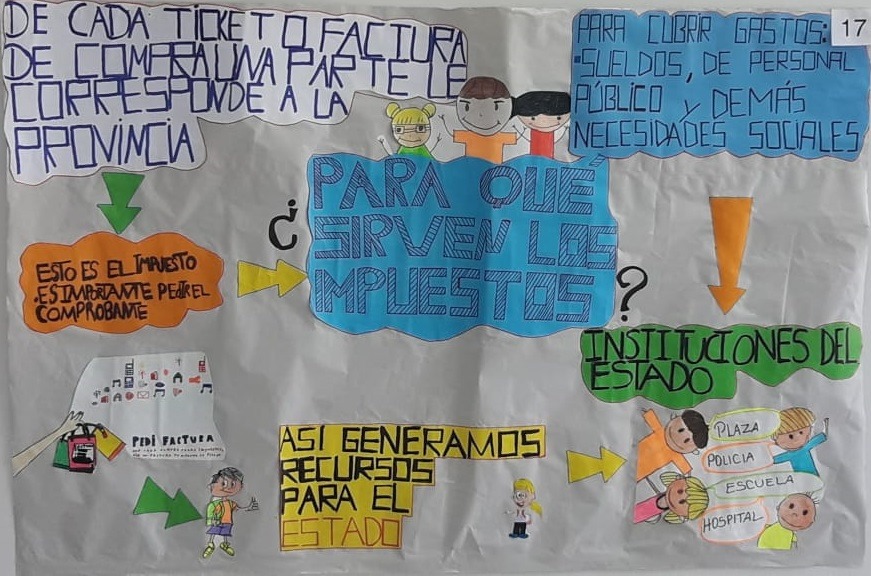 DE CADA TICKET O FACTURA
DE COMPRA UNA PARTE LE
CORRESPONDE A LA
PROVINCIA
PARA CUBRIR GASTOS:
·SUELDOS, DE PERSONAL
PÚBLICO Y DEMÁS
NECESIDADES SOCIALES
17
¿PARA QUÉ
SIRVEN LOS
IMPUESTOS?
ESTO ES EL IMPUESTO
.ES IMPORTANTE PEDIR EL
COMPROBANTE
INSTITUCIONES DEL
ESTADO
PEDÍ FACTURA
ASI GENERAMOS
RECURSOS
PARA EL
ESTADO
PLAZA
POLICIA
ESCUELA
HOSPITAL